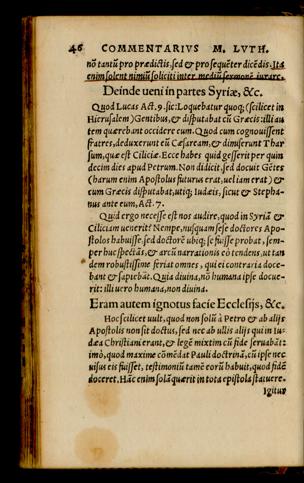 46 COMMENTARIVS M. LVTH.
nõ tantũ pro prædictis, sed & pro sequẽter dicẽdis. Ita
enim solent nimiũ soliciti inter mediũ sermonẽ iurare.
Deinde ueni in partes Syriæ, &c.
Quod Lucas Act. 9. sic: Loquebatur quoq; (scilicet in
Hierusalem) Gentibus, & disputabat cũ Græcis: illi au
tem quærebant occidere eum. Quod cum cognouissent
fratres, deduxerunt eũ Cæsaream, & dimiserunt Thar
sum, quæ est Ciliciæ. Ecce habes quid gesserit per quin
decim dies apud Petrum. Non didicit, sed docuit Gẽtes
(harum enim Apostolus futurus erat, uel iam erat) &
cum Græcis disputabat, utiq; Iudæis, sicut & Stepha-
nus ante eum, Act. 7.
Quid ergo necesse est nos audire, quod in Syriã &
Ciliciam uenerit? Nempe, nusquam sese doctores Apo-
stolos habuisse, sed doctorẽ ubiq; se fuisse probat, sem-
per huc spectãs, & arcũ narrationis eò tendens, ut tan
dem robustissime feriat omnes, qui ei contraria doce-
bant & sapiebãt. Quia diuina, nõ humana ipse docue-
rit: illi uero humana, non diuina.
Eram autem ignotus facie Ecclesijs, &c.
Hoc scilicet uult, quod non solũ à Petro & ab alijs
Apostolis non sit doctus, sed nec ab ullis alijs qui in Iu-
dæa Christiani erant, & legẽ mixtim cũ fide seruabãt:
imò, quod maxime cõmẽdat Pauli doctrinã, cũ ipse nec
uisus eis fuisset, testimoniũ tamẽ eorũ habuit, quod fidẽ
doceret. Hãc enim solã quærit in tota epistola statuere.
Igitur